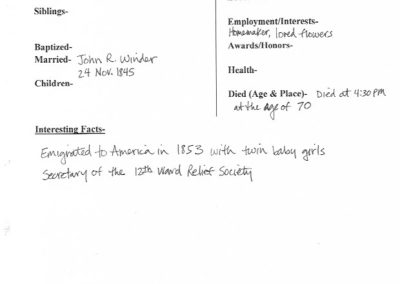 Siblings-
Baptized-
Married- John R. Winder
24 Nov. 1845
Children-
Employment/Interests-
Homemaker, loved flowers
Awards/Honors-
Health-
Died (Age & Place)- Died at 4:30 PM
at the age of 70
Interesting Facts-
Emigrated to America in 1853 with twin baby girls
Secretary of the 12th Ward Relief Society